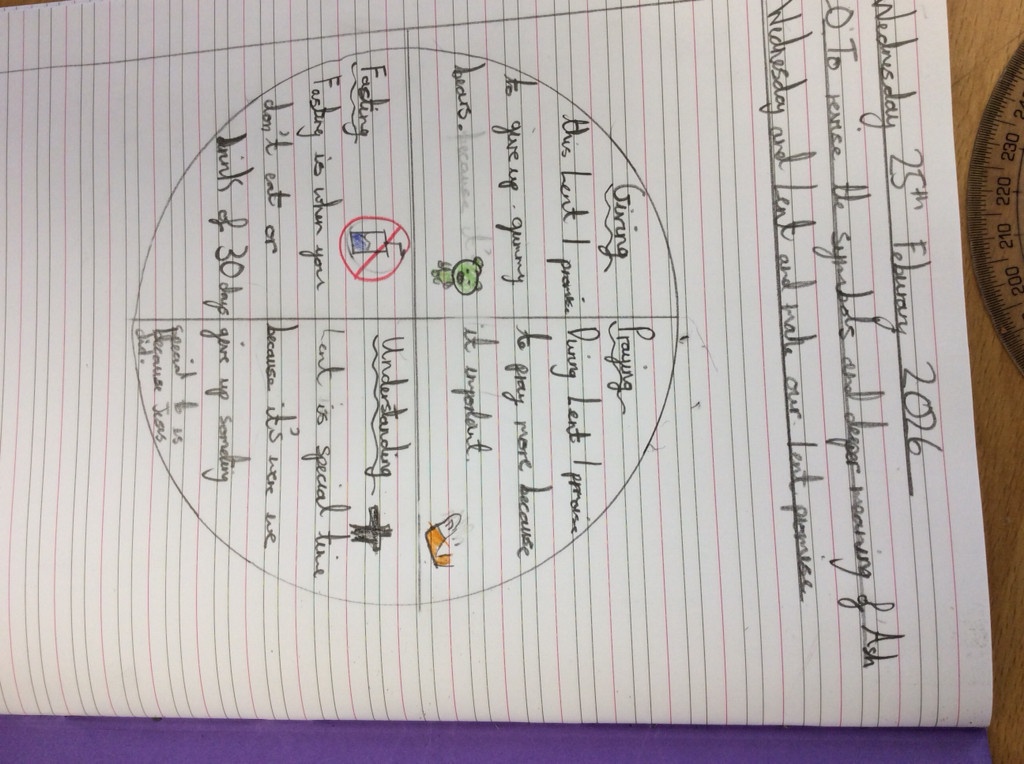 Wednesday 25th Feburary 2026
LO To revice the symbols and deeper meaning of Ash
Wednesday and lent and make our lent promise
Giving
this Lent I promise
to give up gummy
bears. because it's
Praying
During Lent I promise
to pray more because
it important.
Fasting
Fasting is when you
don't eat or
drink of 30 days
Understanding
Lent is special time
because it's were we
give up somthing
special to is
because Jesas
did.
200
210
220
230